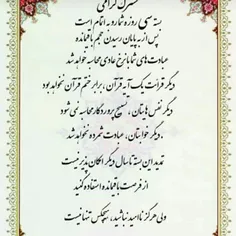 مشترک گرامی
بسته سی روزه شما رو به اتمام است
پس از به پایان رسیدن حجم باقیمانده
عبادت های شما با نرخ عادی محاسبه خواهد شد
دیگر قرائت یک آیه قرآن، برابر ختم قرآن نخواهد بود
دیگر نفس هایتان، تسبیح پروردگار محاسبه نمی شود
دیگر خوابتان، عبادت شمرده نخواهد شد
تمدید این بسته تا سال دیگر امکان پذیر نیست
از فرصت باقیمانده استفاده کنید
ولی هرگز ناامید نباشید، هیچکس تنها نیست